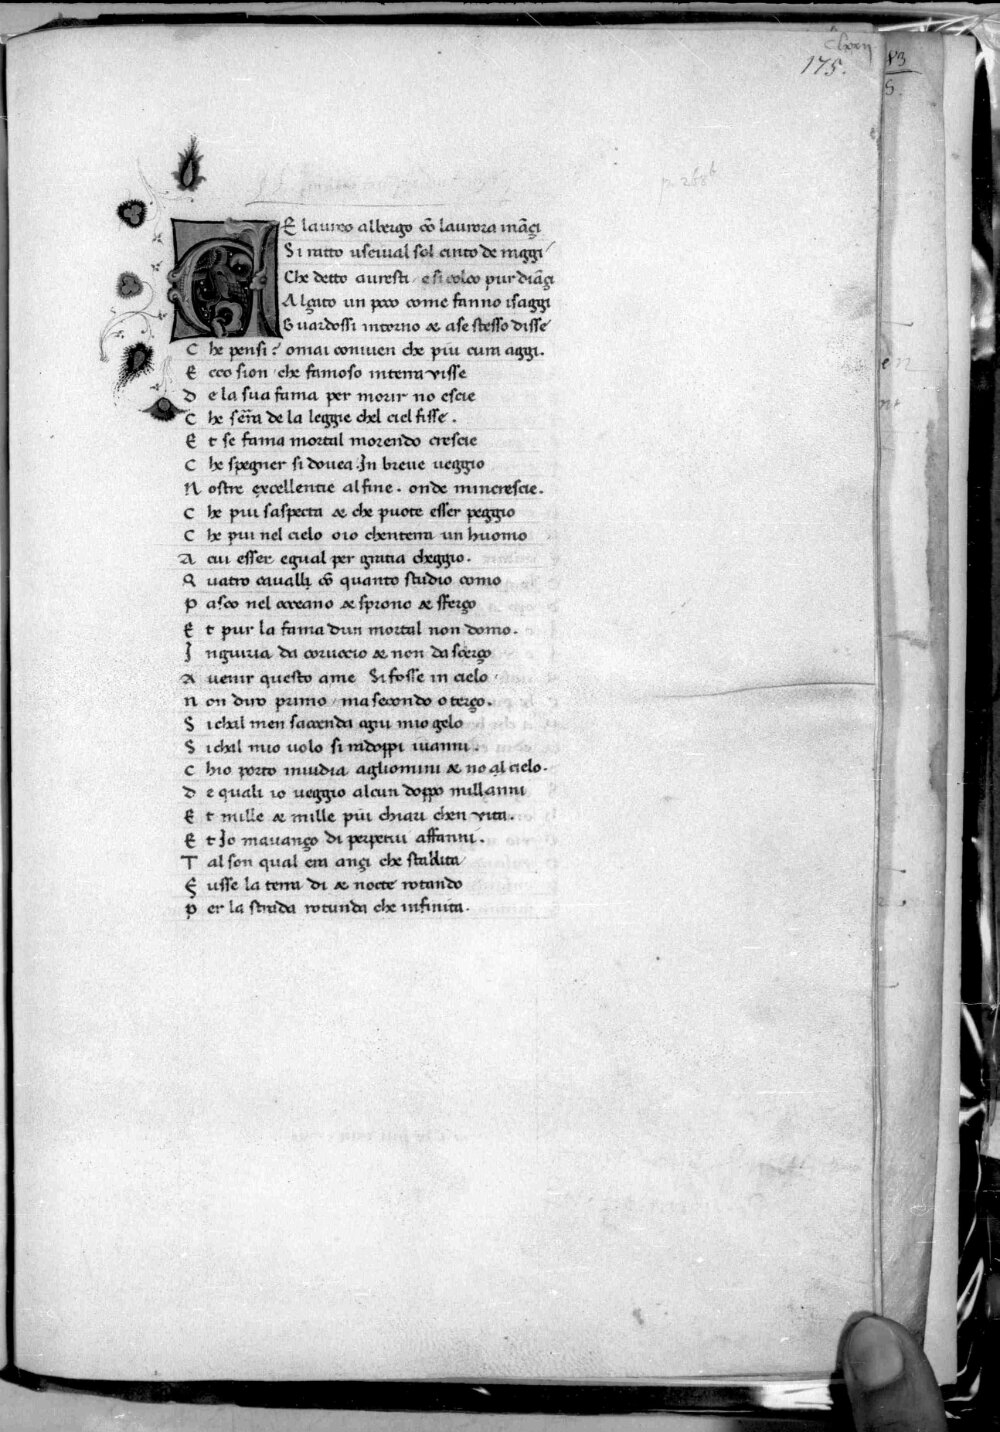 Clxxij
175.
DE laureo albergo cō laurora ināçi
Si ratto usciual sol cinto de raggi
Che detto auresti e si colco pur diāçi
Alçato un poco come fanno isaggi
Guardossi intorno & ase stesso disse
Che pensi? omai conuien che piu cura aggi.
Ecco sion che famoso interra visse
De la sua fama per morir no escie
Che sēra de la leggie chel ciel fisse.
Et se fama mortal morendo crescie
Che spegner si douea In breue ueggio
Nostre excellentie al fine. onde mincrescie.
Che piu saspecta & che puote esser peggio
Che piu nel cielo oio chenterra un huomo
A cui esser egual per gratia cheggio.
Quatro caualli cō quanto studio como
Pasco nel occeano & sprono & sferço
Et pur la fama dun mortal non domo.
Ingiuria da coruccio & non da scherço
Auenir questo ame Si fosse in cielo
Non diro primo ma secondo o terço.
Si chal men saccenda ogni mio çelo
Si chal mio uolo si radoppi iuanni.
Chio porto inuidia agliomini & no al cielo.
De quali io ueggio alcun doppo millanni
Et mille & mille piu chiari chen vita.
Et Io mauanço di perpetui affanni.
Tal son qual era ançi che stabilita
Fusse la terra di & nocte rotando
Per la strada rotunda che infinita.